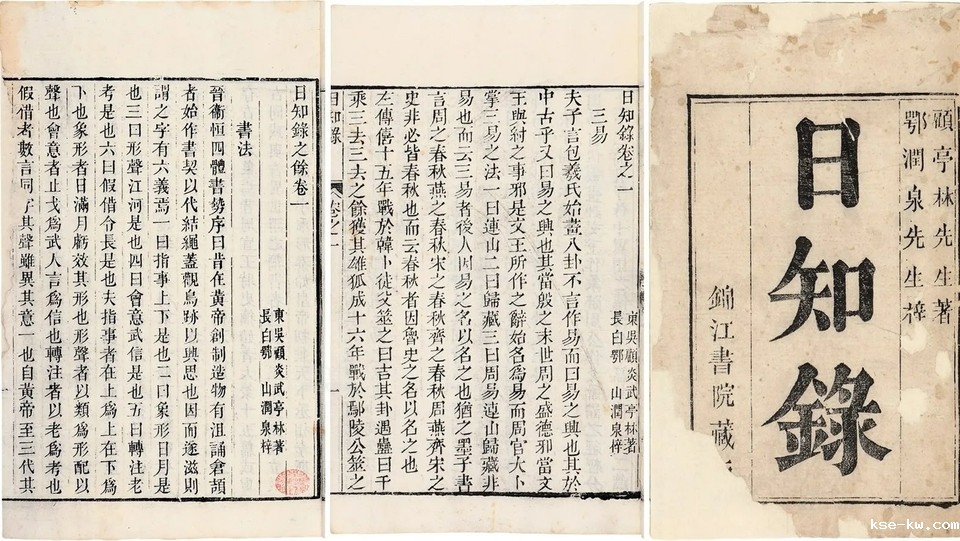 顧亭林先生著
鄂潤泉先生梓
日知錄
錦江書院藏
日知錄卷之一
東吳顧炎武亭林著
長白鄂山潤泉梓
三易
夫子言包羲氏始畫八卦不言作易而曰易之興也其於
中古乎又曰易之興也其當殷之末世周之盛德邪當文
王與紂之事邪是文王所作之辭始名爲易而周官大卜
掌三易之法一曰連山二曰歸藏三曰周易連山歸藏非
易也而云三易者後人因易之名以名之也猶之墨子書
言周之春秋燕之春秋宋之春秋齊之春秋周燕齊宋之
史非必皆春秋也而云春秋者因魯史之名以名之也
左傳僖十五年戰於韓卜徒父筮之曰吉其卦遇蠱曰千
乘三去三去之餘獲其雄狐成十六年戰於鄢陵公筮之
日知錄 卷之一 一
日知錄之餘卷一
東吳顧炎武亭林著
長白鄂山潤泉梓
書法
晉衞恒四體書勢序曰昔在黃帝創制造物有沮誦倉頡
者始作書契以代結繩蓋觀鳥跡以興思也因而遂滋則
謂之字有六義焉一曰指事上下是也二曰象形日月是
也三曰形聲江河是也四曰會意武信是也五曰轉注老
考是也六曰假借令長是也夫指事者在上爲上在下爲
下也象形者日滿月虧效其形也形聲者以類爲形配以
聲也會意者止戈爲武人言爲信也轉注者以老爲考也
假借者數言同字其聲雖異其意一也自黃帝至三代其
kse-kw.com